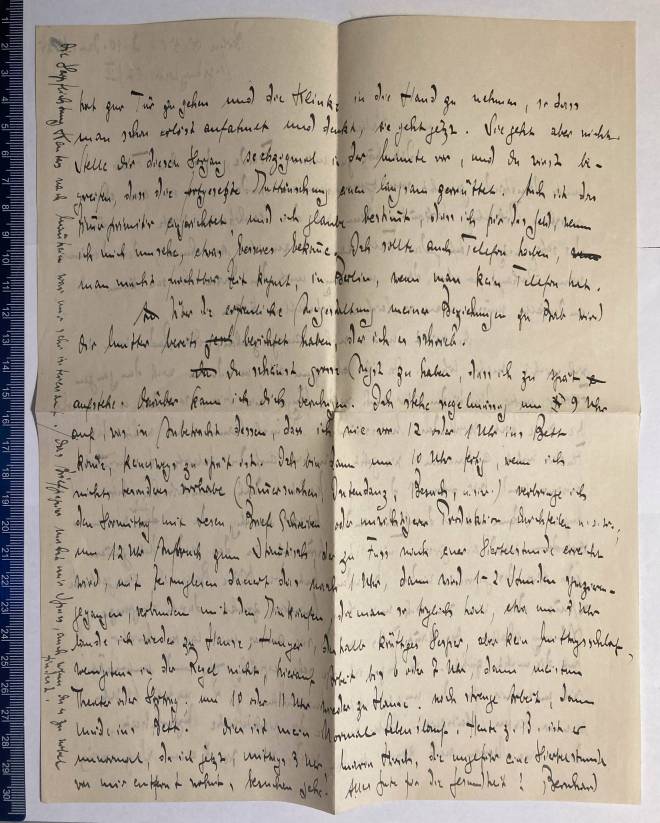 hat zur Tür zu gehen und die Klinke in die Hand zu nehmen, so dass
man schon erlöst aufatmet und denkt, sie geht jetzt. Sie geht aber nicht.
Stelle dir diesen Vorgang sechzigmal in der Minute vor, und du wirst be-
greifen, dass die fortgesetzte Enttäuschung einen langsam zerrüttet. Auch ist das
Zimmer primitiv eingerichtet, und ich glaube bestimmt, dass ich für das Geld, wenn
ich mich umsehe, etwas besseres bekomme. Ich sollte auch Telefon haben,
man macht sich kaputt, in Berlin, wenn man kein Telefon hat.
Über die erfreuliche Ausgestaltung meiner Beziehungen zu wird
dir Mutter bereits berichtet haben, der ich es schrieb.
Du scheinst grosse Angst zu haben, dass ich zu spät
aufstehe. Darüber kann ich dich beruhigen. Ich stehe regelmässig um 9 Uhr
auf, was in Anbetracht dessen, dass ich nie vor 12 oder 1 Uhr ins Bett
komme, keineswegs zu spät ist. Ich bin dann um 10 Uhr fertig, wenn ich
nichts besonderes vorhabe (Zimmersuchen, Intendanz, Besuch, u.s.w.) verbringe ich
den Vormittag mit Lesen, Briefe Schreiben oder musikalischer Produktion, u.s.w.,
um 12 Uhr Aufbruch zum der zu Fuss nach einer Viertelstunde erreicht
wird, mit dauert das nach 1 Uhr, dann wird 1-2 Stunden spazieren-
gegangen, verbunden mit den Einkäufen, die man so täglich hat, etwa um 3 Uhr
lande ich wieder zu Hause, Hunger, deshalb kräftiges Vesper, aber kein Mittagsschlaf,
wenigstens in der Regel nicht, hierauf Arbeit bis 6 oder 7 Uhr, dann meistens
Theater oder Vortrag. um 10 oder 11 Uhr wieder zu Hause. noch strenge Arbeit, dann
müde ins Bett. Dies ist mein Normal-Lebenslauf. Heute z. B. ist er
unnormal, da ich jetzt, mittags 3 Uhr, Hirsch, die ungefähr eine Viertelstunde
von mir entfernt wohnt, besuchen gehe. Alles Gute für die Gesundheit! Bernhard
Die nach München war mir sehr interessant. Das Briefpapier macht mir Spass, auch wenn du es zu nobel
findest.